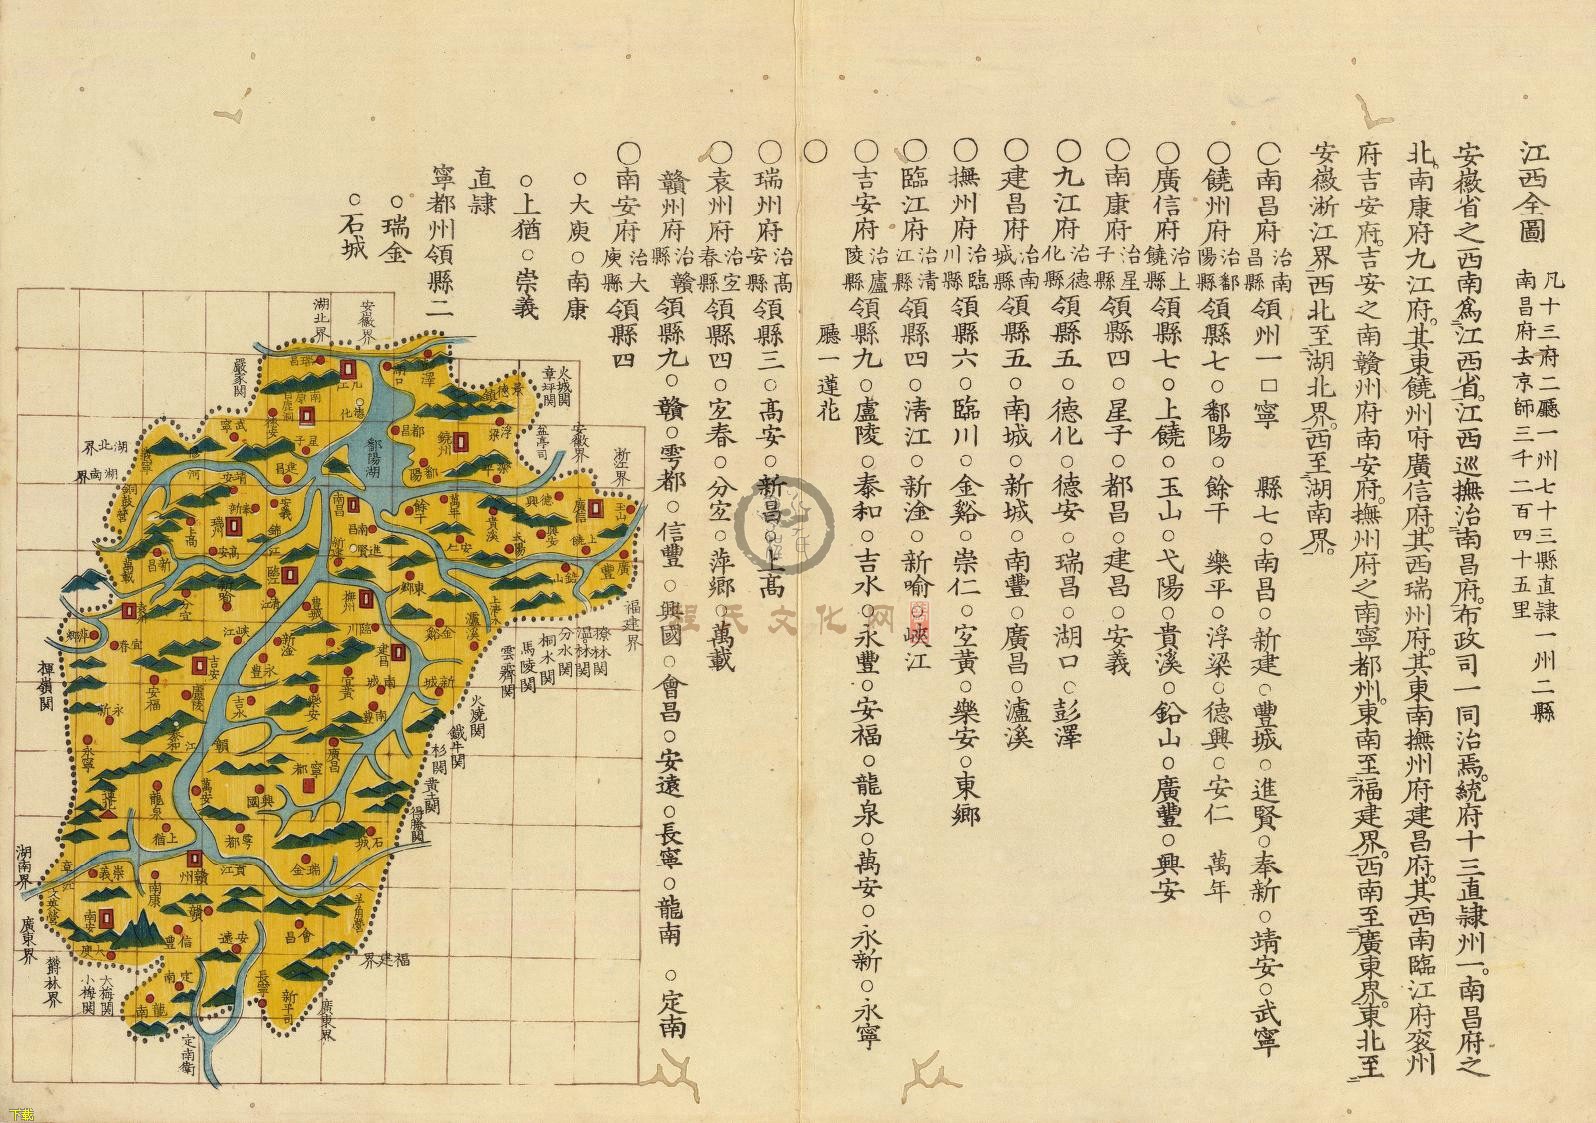 江西全圖 凡十三府二廳一州七十三縣直隷一州二縣
南昌府去京師三千二百四十五里
安徽省之西南爲江西省江西巡撫治南昌府布政司一同治焉統府十三直隷州一南昌府之
北南康府九江府其東饒州府廣信府其西瑞州府其東南撫州府建昌府其西南臨江府袁州
府吉安府吉安之南贛州府南安府撫州府之南寧都州東南至福建界西南至廣東界東北至
安徽淅江界西北至湖北界西至湖南界
○南昌府治南昌縣領州一□寧 縣七○南昌○新建○豐城○進賢○奉新○靖安○武寧
○饒州府治鄱陽縣領縣七○鄱陽○餘干 樂平○浮梁○德興○安仁 萬年
○廣信府治上饒縣領縣七○上饒○玉山○弋陽○貴溪○鉛山○廣豐○興安
○南康府治星子縣領縣四○星子○都昌○建昌○安義
○九江府治德化縣領縣五○德化○德安○瑞昌○湖口○彭澤
○建昌府治南城縣領縣五○南城○新城○南豐○廣昌○瀘溪
○撫州府治臨川縣領縣六○臨川○金谿○崇仁○宜黃○樂安○東鄉
○臨江府治清江縣領縣四○清江○新淦○新喻○峽江
○吉安府治廬陵縣領縣九○廬陵○泰和○吉水○永豐○安福○龍泉○萬安○永新○永寧
○ 廳一蓮花
○瑞州府治高安縣領縣三○高安○新昌○上高
○袁州府治宜春縣領縣四○宜春○分宜○萍鄉○萬載
贛州府治贛縣領縣九○贛○雩都○信豐○興國○會昌○安遠○長寧○龍南○定南
○南安府治大庾縣領縣四
○大庾○南康
○上猶○崇義
直隷
寧都州領縣二
○瑞金
○石城
安徽界
湖北界
嚴家關
火城關
章坪關
盆亭司
安徽界
淅江界
湖北界
湖南界
福建界
瑞昌
九江
湖口
彭澤
景德鎮
南康
白鹿洞
德化
星子
德安
武寧
都昌
饒州
浮梁
鄱陽湖
鄱陽
樂平
義寧
修河
靖安
建昌
銅鼓營
奉新
安義
南昌
餘干
萬年
德興
廣信
玉山
上高
瑞州
高安
錦江
新建
南昌
進賢
安仁
貴溪
弋陽
興安
上饒
廣豐
鉛山
萬載
新昌
新喻
臨江
清江
豐城
撫州
東鄉
上清水
瀘溪
分宜
袁州
萍鄉
宜春
峽江
新淦
臨川
金谿
建昌
吉安
永豐
宜黃
南城
新城
安福
廬陵
吉水
樂安
南豐
永新
泰和
贛江
廣昌
永寧
寧都
蓮花
龍泉
萬安
興國
上猶
雩都
石城
崇義
章江
贛州
貢江
瑞金
文英營
南康
羊角營
南安
贛
大庾
信豐
安遠
會昌
定南
龍南
長寧
新平司
撩林關
溫林關
分水關
桐木關
馬陵關
雲霽關
火燒關
鐵牛關
杉關
黃土關
得勝關
福建界
廣東界
定南衛
大梅關
小梅關
欝林界
廣東界
湖南界
揷嶺關
程氏文化网
下載